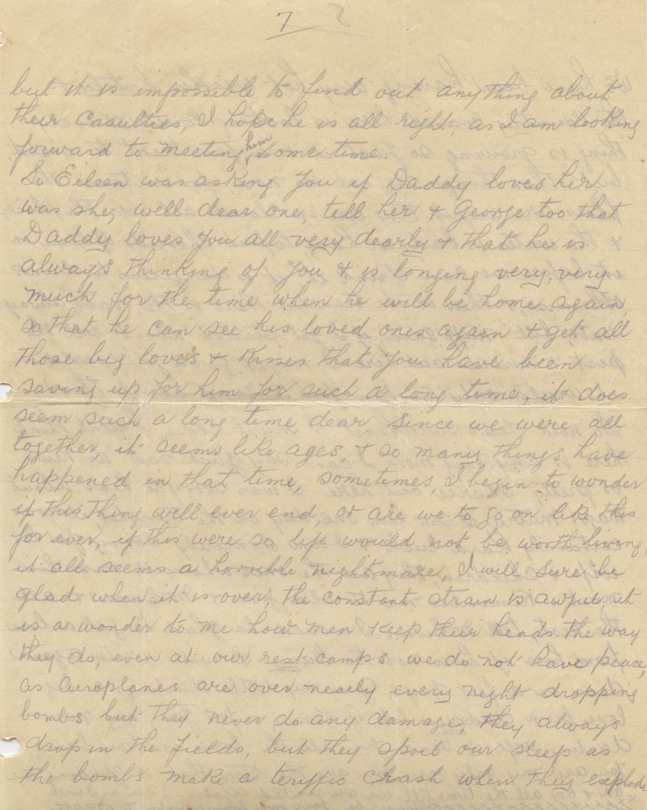 7 5
but it is impossible to find out anything about
their Casulties, I hope he is all right as I am looking
forward to meeting him some time.
So Eileen was asking you if Daddy loves her
was she, well dear one, tell her + George too that
Daddy loves you all very dearly + that he is
always thinking of you + is longing very, very
much for the time when he will be home again,
so that he can see his loved ones again + get all
those big loves + Kisses that you have been
saving up for him for such a long time, it does
seem such a long time, dear since we were all
together, it seems like ages, + so many things have
happened in that time, sometimes, I begin to wonder
if this Thing will ever end, or are we to go on like this
for ever, if this were so life would not be worth living,
it all seems a horrible nightmare, I will sure be
glad when it is over, the constant strain is awful, it
is a wonder to me how men keep their heads the way
they do, even at our rest camps we do not have peace,
as Aeroplanes are over nearly every night dropping
bombs, but they never do any damage, they always
drop in the fields, but they spoil our sleep as
the bombs make a teriffic crash when they explode